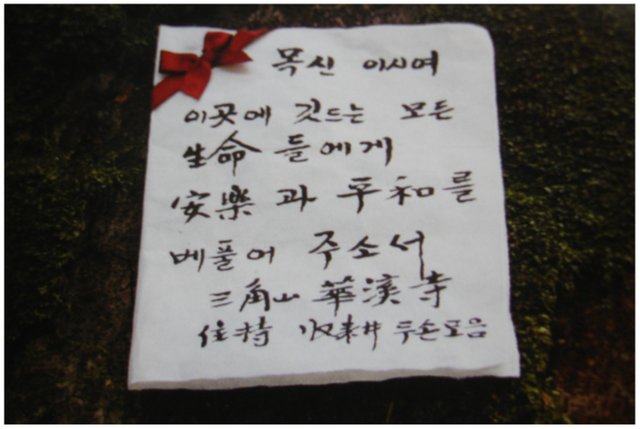 목신 이시여
이곳에 깃드는 모든
生命 들에게
安樂 과 平和를
베풀어 주소서
三角山 華溪寺
住持 收耕 두손모음